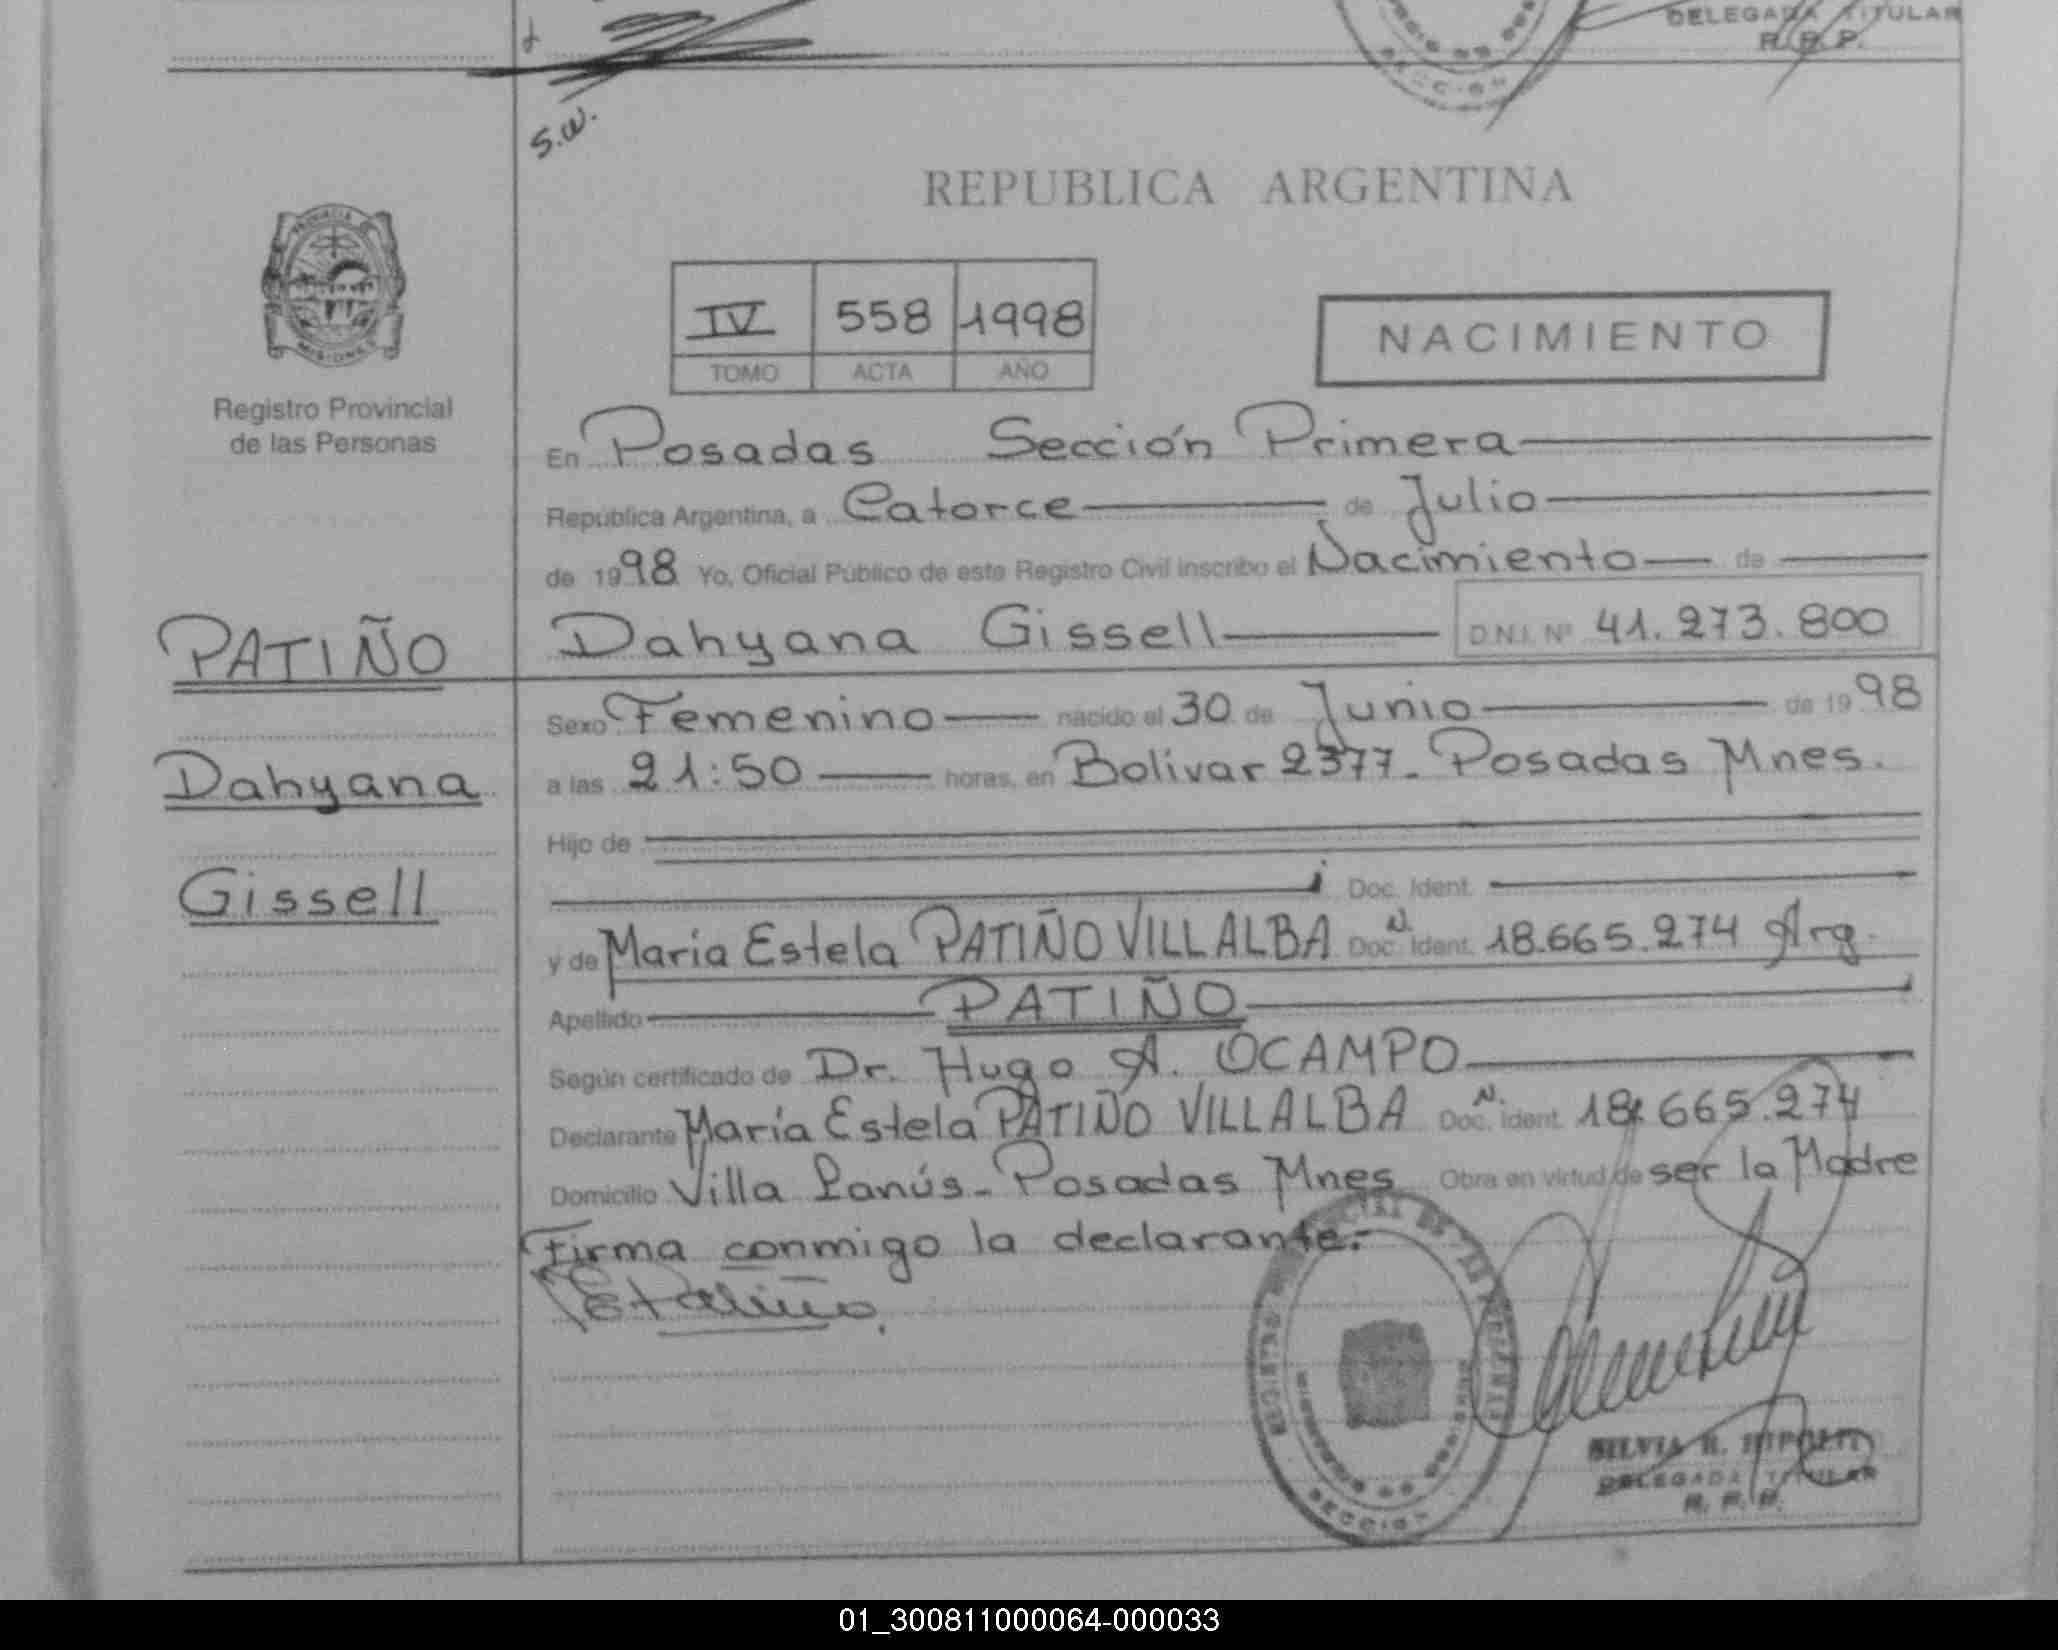 DELEGADA TITULAR
R. R. P.
SECCION
S.W.
REPUBLICA ARGENTINA
PROVINCIA DE
MISIONES
Registro Provincial
de las Personas
IV 558 1998
TOMO ACTA AÑO
NACIMIENTO
En Posadas Sección Primera
República Argentina, a Catorce de Julio
de 1998 Yo, Oficial Público de este Registro Civil inscribo el Nacimiento de
PATIÑO
Dahyana Gissell D.N.I. Nº 41.273.800
Sexo Femenino nacido el 30 de Junio de 1998
Dahyana
a las 21:50 horas, en Bolivar 2377. Posadas Mnes.
Hijo de
Gissell
Doc. Ident.
y de Maria Estela PATIÑO VILLALBA Doc. N. Ident. 18.665.274 Arg.
Apellido PATIÑO
Según certificado de Dr. Hugo A. OCAMPO
Declarante María Estela PATIÑO VILLALBA Doc. N. Ident. 18.665.274
Domicilio Villa Lanús - Posadas Mnes Obra en virtud de ser la Madre
Firma conmigo la declarante.-
SECCION
SILVIA R. HIPOLITI
DELEGADA TITULAR
R. P. P.
01_300811000064-000033